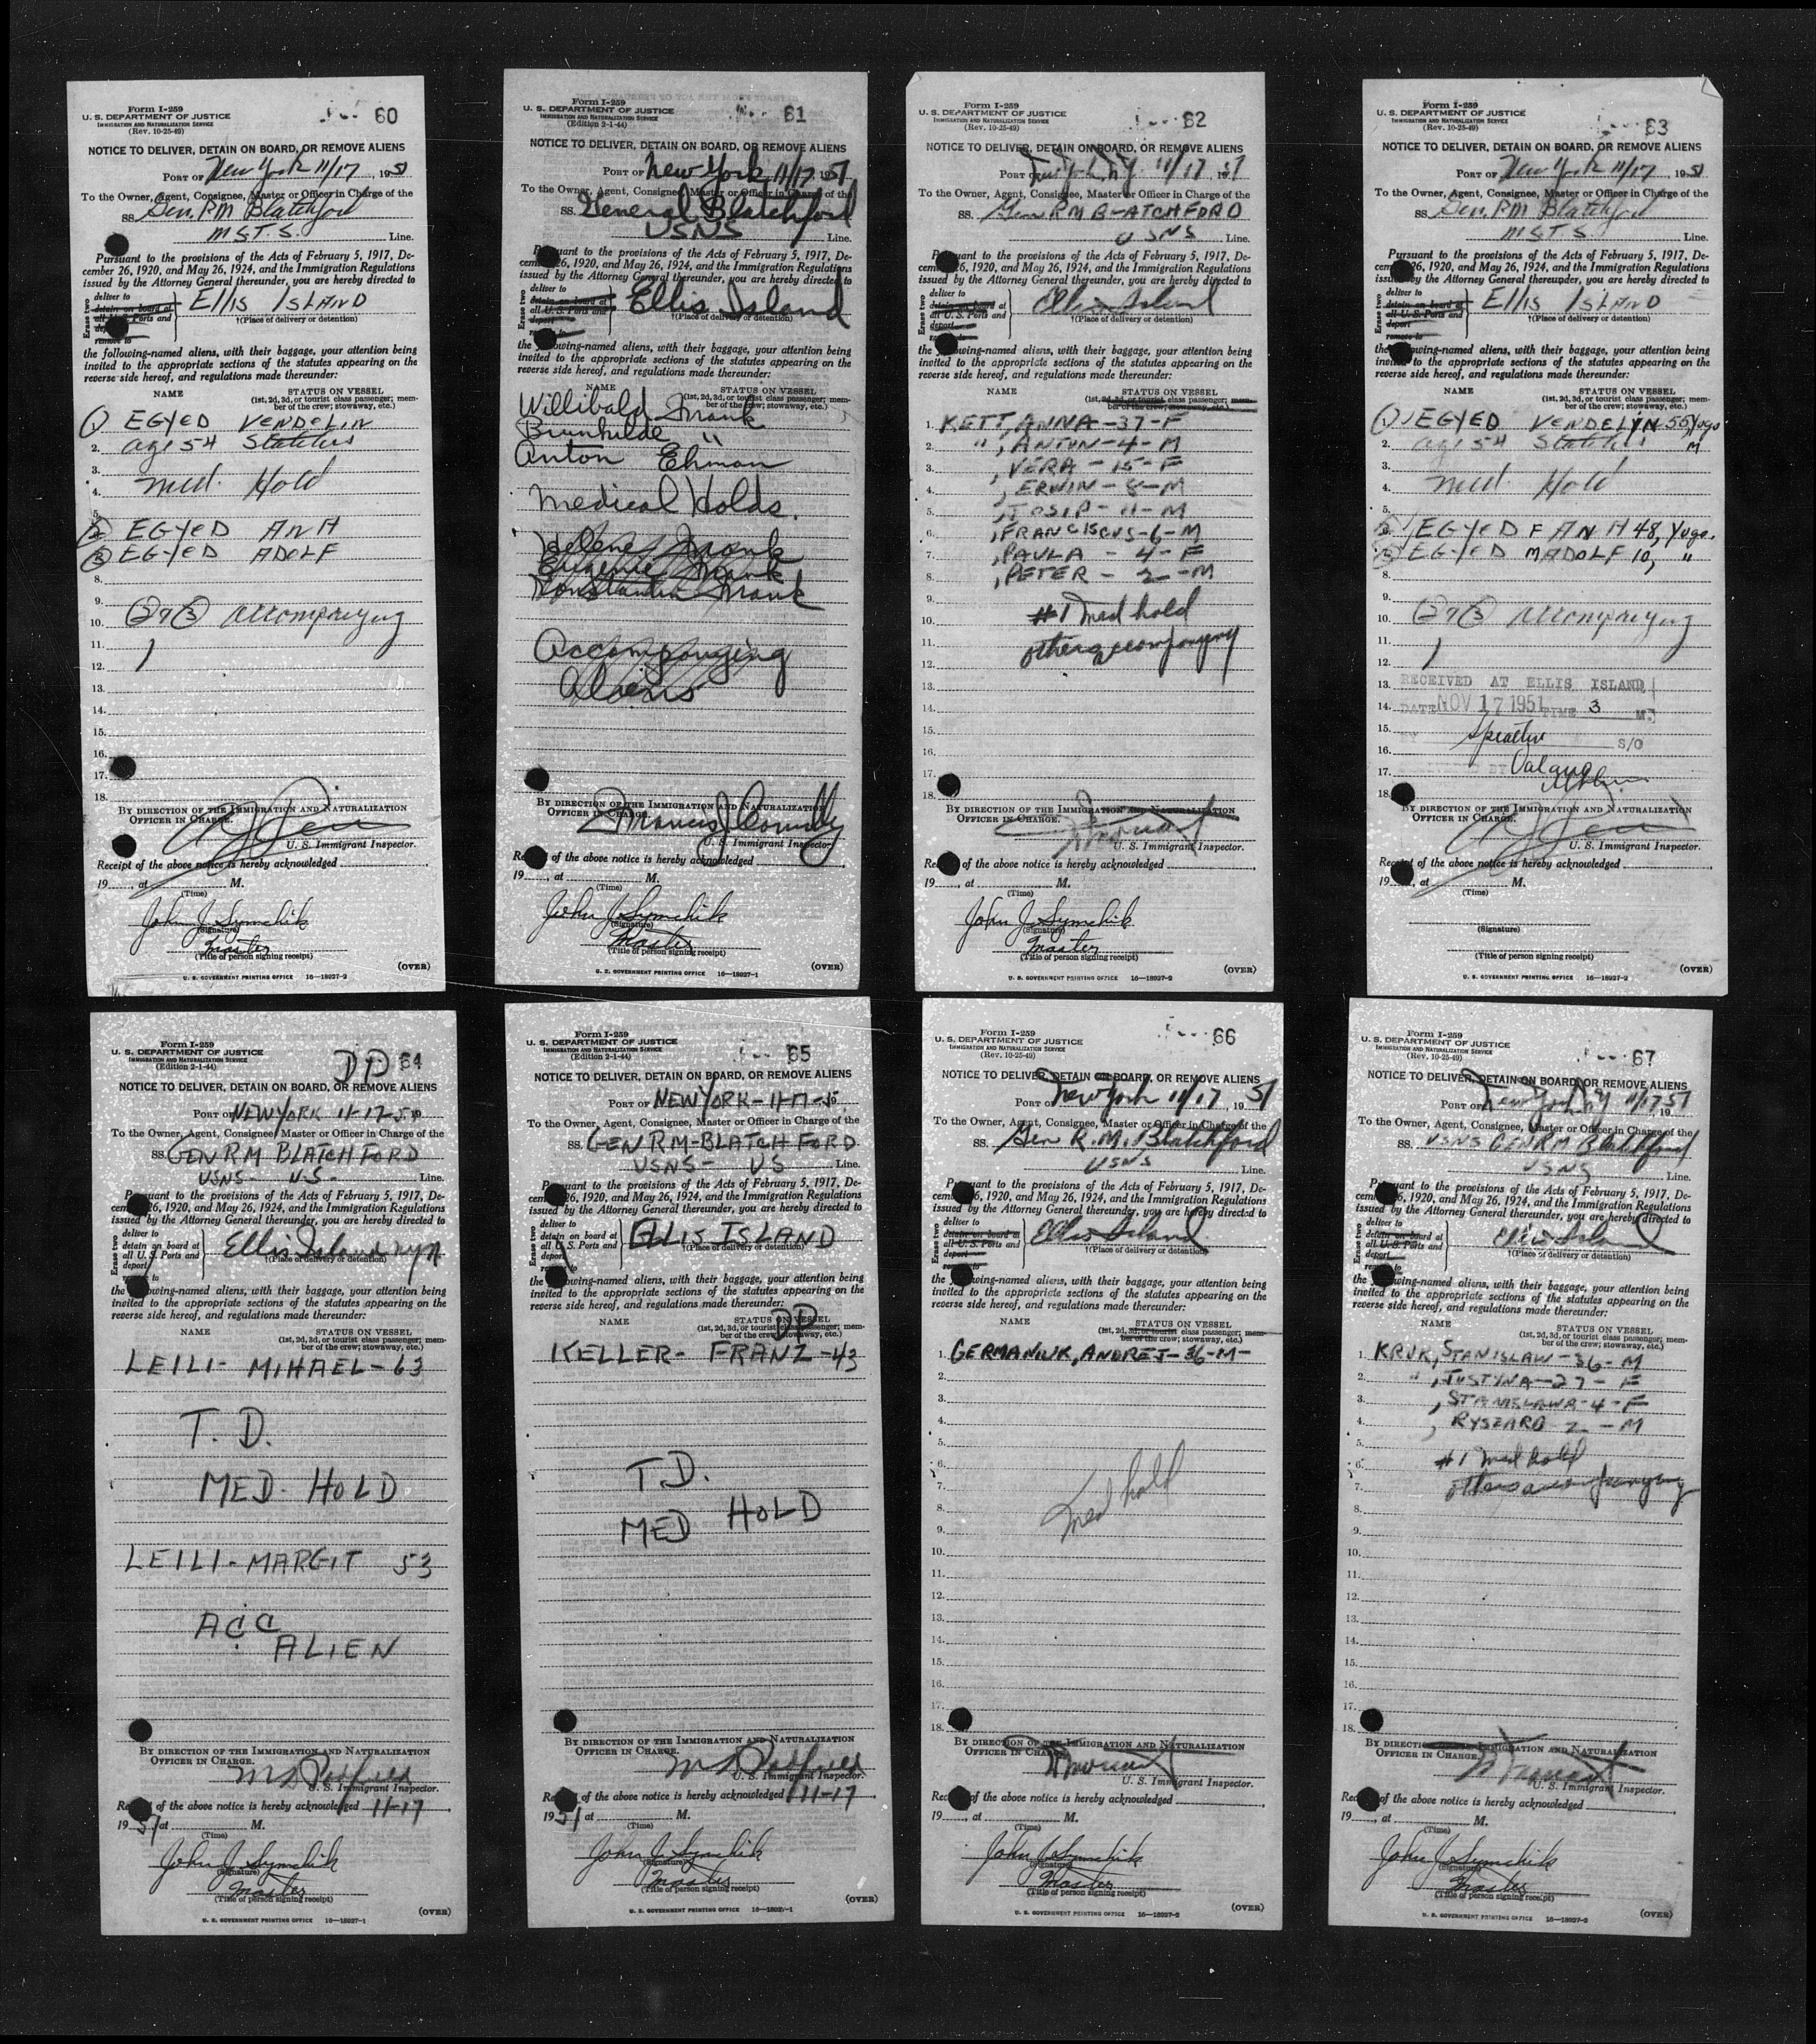 Form I-259
U. S. DEPARTMENT OF JUSTICE
IMMIGRATION AND NATURALIZATION SERVICE
(Rev. 10-25-49)
60
NOTICE TO DELIVER, DETAIN ON BOARD, OR REMOVE ALIENS
PORT OF New York 11/17, 1951
To the Owner, Agent, Consignee, Master or Officer in Charge of the
SS. Gen. RM Blatchford
M.S.T.S. Line.
Pursuant to the provisions of the Acts of February 5, 1917, De-
cember 26, 1920, and May 26, 1924, and the Immigration Regulations
issued by the Attorney General thereunder, you are hereby directed to
Erase two
deliver to
detain on board at
all U. S. Ports and
remove to
ELLIS ISLAND
†(Place of delivery or detention)
the following-named aliens, with their baggage, your attention being
invited to the appropriate sections of the statutes appearing on the
reverse side hereof, and regulations made thereunder:
NAME STATUS ON VESSEL
(1st, 2d, 3d, or tourist class passenger; mem-
ber of the crew; stowaway, etc.)
① EGYED VENDELIN
2. age 54
3.
4. Med. Hold
5.
② EGYED ANA
③ EGYED ADOLF
8.
9.
10. ② & ③ accompanying
11.
12. 1
13.
14.
15.
16.
17.
18.
BY DIRECTION OF THE IMMIGRATION AND NATURALIZATION
OFFICER IN CHARGE.
U. S. Immigrant Inspector.
Receipt of the above notice is hereby acknowledged
19, at M.
(Time)
John J. Symchik
(Signature)
Master
(Title of person signing receipt)
U. S. GOVERNMENT PRINTING OFFICE 16—18927-2 (OVER)
Form I-259
U. S. DEPARTMENT OF JUSTICE
IMMIGRATION AND NATURALIZATION SERVICE
(Edition 2-1-44)
61
NOTICE TO DELIVER, DETAIN ON BOARD, OR REMOVE ALIENS
PORT OF New York, 11/17, 1951
To the Owner, Agent, Consignee, Master or Officer in Charge of the
SS. General Blatchford
USNS Line.
Pursuant to the provisions of the Acts of February 5, 1917, De-
cember 26, 1920, and May 26, 1924, and the Immigration Regulations
issued by the Attorney General thereunder, you are hereby directed to
Erase two
deliver to
detain on board at
all U. S. Ports and
remove to
Ellis Island
†(Place of delivery or detention)
the following-named aliens, with their baggage, your attention being
invited to the appropriate sections of the statutes appearing on the
reverse side hereof, and regulations made thereunder:
NAME STATUS ON VESSEL
(1st, 2d, 3d, or tourist class passenger; mem-
ber of the crew; stowaway, etc.)
Willibald Mank
Brunhilde "
Anton Ehman
Medical Holds.
Helene Mank
Eugenie Mank
Konstantin Mank
Accompanying
Aliens
BY DIRECTION OF THE IMMIGRATION AND NATURALIZATION
OFFICER IN CHARGE.
Francis J Connolly
U. S. Immigrant Inspector.
Receipt of the above notice is hereby acknowledged
19, at M.
(Time)
John J. Symchik
(Signature)
Master
(Title of person signing receipt)
U. S. GOVERNMENT PRINTING OFFICE 16—18927-1 (OVER)
Form I-259
U. S. DEPARTMENT OF JUSTICE
IMMIGRATION AND NATURALIZATION SERVICE
(Rev. 10-25-49)
62
NOTICE TO DELIVER, DETAIN ON BOARD, OR REMOVE ALIENS
PORT OF New York, N.Y. 11/17 1951
To the Owner, Agent, Consignee, Master or Officer in Charge of the
SS. Gen RM BLATCHFORD
USNS Line.
Pursuant to the provisions of the Acts of February 5, 1917, De-
cember 26, 1920, and May 26, 1924, and the Immigration Regulations
issued by the Attorney General thereunder, you are hereby directed to
Erase two
deliver to
detain on board at
all U. S. Ports and
deport
remove to
Ellis Island
†(Place of delivery or detention)
the following-named aliens, with their baggage, your attention being
invited to the appropriate sections of the statutes appearing on the
reverse side hereof, and regulations made thereunder:
NAME STATUS ON VESSEL
(1st, 2d, 3d, or tourist class passenger; mem-
ber of the crew; stowaway, etc.)
1. KETT, ANNA-37-F
2. ", ANTUN-4-M
3. , VERA-15-F
4. , ERWIN-8-M
5. , JOSIP-11-M
6. , FRANCISCUS-6-M
7. , PAULA-4-F
8. , PETER-2-M
9. #1 Med hold
10.
11. others accompanying
12.
13.
14.
15.
16.
17.
18.
BY DIRECTION OF THE IMMIGRATION AND NATURALIZATION
OFFICER IN CHARGE.
U. S. Immigrant Inspector.
Receipt of the above notice is hereby acknowledged
19, at M.
(Time)
John J. Symchik
(Signature)
Master
(Title of person signing receipt)
U. S. GOVERNMENT PRINTING OFFICE 16—18927-2 (OVER)
Form I-259
U. S. DEPARTMENT OF JUSTICE
IMMIGRATION AND NATURALIZATION SERVICE
(Rev. 10-25-49)
63
NOTICE TO DELIVER, DETAIN ON BOARD, OR REMOVE ALIENS
PORT OF New York 11/17, 1951
To the Owner, Agent, Consignee, Master or Officer in Charge of the
SS. Gen. RM Blatchford
M.S.T.S. Line.
Pursuant to the provisions of the Acts of February 5, 1917, De-
cember 26, 1920, and May 26, 1924, and the Immigration Regulations
issued by the Attorney General thereunder, you are hereby directed to
Erase two
deliver to
detain on board at
all U. S. Ports and
deport
remove to
ELLIS ISLAND
†(Place of delivery or detention)
the following-named aliens, with their baggage, your attention being
invited to the appropriate sections of the statutes appearing on the
reverse side hereof, and regulations made thereunder:
NAME STATUS ON VESSEL
(1st, 2d, 3d, or tourist class passenger; mem-
ber of the crew; stowaway, etc.)
① EGYED VENDELIN 55, Yugo
2. age 54 M
3.
4. Med. Hold
5.
② EGYED F ANA 48, Yugo.
③ EGYED M ADOLF 10, "
8.
9.
10. ② & ③ accompanying
11.
12. 1
13. RECEIVED AT ELLIS ISLAND
14. DATE NOV 17 1951 TIME 3 M.
15. BY
16. S/O
17.
18.
BY DIRECTION OF THE IMMIGRATION AND NATURALIZATION
OFFICER IN CHARGE.
U. S. Immigrant Inspector.
Receipt of the above notice is hereby acknowledged
19, at M.
(Time)
(Signature)
(Title of person signing receipt)
U. S. GOVERNMENT PRINTING OFFICE 16—18927-2 (OVER)
Form I-259
U. S. DEPARTMENT OF JUSTICE
IMMIGRATION AND NATURALIZATION SERVICE
(Edition 2-1-44)
DP 64
NOTICE TO DELIVER, DETAIN ON BOARD, OR REMOVE ALIENS
PORT OF NEW YORK 11-17-51
To the Owner, Agent, Consignee, Master or Officer in Charge of the
SS. GEN RM BLATCHFORD
USNS- U.S. Line.
Pursuant to the provisions of the Acts of February 5, 1917, De-
cember 26, 1920, and May 26, 1924, and the Immigration Regulations
issued by the Attorney General thereunder, you are hereby directed to
Erase two
deliver to
detain on board at
all U. S. Ports and
deport
remove to
Ellis Island N.Y.
†(Place of delivery or detention)
the following-named aliens, with their baggage, your attention being
invited to the appropriate sections of the statutes appearing on the
reverse side hereof, and regulations made thereunder:
NAME STATUS ON VESSEL
(1st, 2d, 3d, or tourist class passenger; mem-
ber of the crew; stowaway, etc.)
LEILI- MIHAEL-63
T. D.
MED. HOLD
LEILI-MARGIT 53
ACC
ALIEN
BY DIRECTION OF THE IMMIGRATION AND NATURALIZATION
OFFICER IN CHARGE.
U. S. Immigrant Inspector.
Receipt of the above notice is hereby acknowledged 11-17
1951 at M.
(Time)
John J. Symchik
(Signature)
Master
(Title of person signing receipt)
U. S. GOVERNMENT PRINTING OFFICE 16—18927-1 (OVER)
Form I-259
U. S. DEPARTMENT OF JUSTICE
IMMIGRATION AND NATURALIZATION SERVICE
(Edition 2-1-44)
65
NOTICE TO DELIVER, DETAIN ON BOARD, OR REMOVE ALIENS
PORT OF NEW YORK-11-17-51
To the Owner, Agent, Consignee, Master or Officer in Charge of the
SS. GEN RM-BLATCHFORD
USNS- US Line.
Pursuant to the provisions of the Acts of February 5, 1917, De-
cember 26, 1920, and May 26, 1924, and the Immigration Regulations
issued by the Attorney General thereunder, you are hereby directed to
Erase two
deliver to
detain on board at
all U. S. Ports and
deport
remove to
ELLIS ISLAND
†(Place of delivery or detention)
the following-named aliens, with their baggage, your attention being
invited to the appropriate sections of the statutes appearing on the
reverse side hereof, and regulations made thereunder:
NAME STATUS ON VESSEL
(1st, 2d, 3d, or tourist class passenger; mem-
ber of the crew; stowaway, etc.)
DP
KELLER- FRANZ-43
T.D.
MED HOLD
BY DIRECTION OF THE IMMIGRATION AND NATURALIZATION
OFFICER IN CHARGE.
U. S. Immigrant Inspector.
Receipt of the above notice is hereby acknowledged 11-17
1951 at M.
(Time)
John J. Symchik
(Signature)
Master
(Title of person signing receipt)
U. S. GOVERNMENT PRINTING OFFICE 16—18927-1 (OVER)
Form I-259
U. S. DEPARTMENT OF JUSTICE
IMMIGRATION AND NATURALIZATION SERVICE
(Rev. 10-25-49)
66
NOTICE TO DELIVER, DETAIN ON BOARD, OR REMOVE ALIENS
PORT OF New York 11/17, 1951
To the Owner, Agent, Consignee, Master or Officer in Charge of the
SS. Gen R.M. Blatchford
USNS Line.
Pursuant to the provisions of the Acts of February 5, 1917, De-
cember 26, 1920, and May 26, 1924, and the Immigration Regulations
issued by the Attorney General thereunder, you are hereby directed to
Erase two
deliver to
detain on board at
all U. S. Ports and
deport
remove to
Ellis Island
†(Place of delivery or detention)
the following-named aliens, with their baggage, your attention being
invited to the appropriate sections of the statutes appearing on the
reverse side hereof, and regulations made thereunder:
NAME STATUS ON VESSEL
(1st, 2d, 3d, or tourist class passenger; mem-
ber of the crew; stowaway, etc.)
1. GERMANIUK, ANDREJ-36-M-
2.
3.
4.
5.
6.
7. Med hold
8.
9.
10.
11.
12.
13.
14.
15.
16.
17.
18.
BY DIRECTION OF THE IMMIGRATION AND NATURALIZATION
OFFICER IN CHARGE.
U. S. Immigrant Inspector.
Receipt of the above notice is hereby acknowledged
19, at M.
(Time)
John J. Symchik
(Signature)
Master
(Title of person signing receipt)
U. S. GOVERNMENT PRINTING OFFICE 16—18927-2 (OVER)
Form I-259
U. S. DEPARTMENT OF JUSTICE
IMMIGRATION AND NATURALIZATION SERVICE
(Rev. 10-25-49)
67
NOTICE TO DELIVER, DETAIN ON BOARD, OR REMOVE ALIENS
PORT OF New York NY 11/17 1951
To the Owner, Agent, Consignee, Master or Officer in Charge of the
SS. USNS GEN RM Blatchford
USNS Line.
Pursuant to the provisions of the Acts of February 5, 1917, De-
cember 26, 1920, and May 26, 1924, and the Immigration Regulations
issued by the Attorney General thereunder, you are hereby directed to
Erase two
deliver to
detain on board at
all U. S. Ports and
deport
remove to
Ellis Island
†(Place of delivery or detention)
the following-named aliens, with their baggage, your attention being
invited to the appropriate sections of the statutes appearing on the
reverse side hereof, and regulations made thereunder:
NAME STATUS ON VESSEL
(1st, 2d, 3d, or tourist class passenger; mem-
ber of the crew; stowaway, etc.)
1. KRUK, STANISLAW-36-M
2. ", JUSTYNA-27-F
3. , STANISLAWA-4-F
4. , RYSZARD 2-M
5.
6. #1 Med hold
7. others accompanying
8.
9.
10.
11.
12.
13.
14.
15.
16.
17.
18.
BY DIRECTION OF THE IMMIGRATION AND NATURALIZATION
OFFICER IN CHARGE.
U. S. Immigrant Inspector.
Receipt of the above notice is hereby acknowledged
19, at M.
(Time)
John J. Symchik
(Signature)
Master
(Title of person signing receipt)
U. S. GOVERNMENT PRINTING OFFICE 16—18927-2 (OVER)